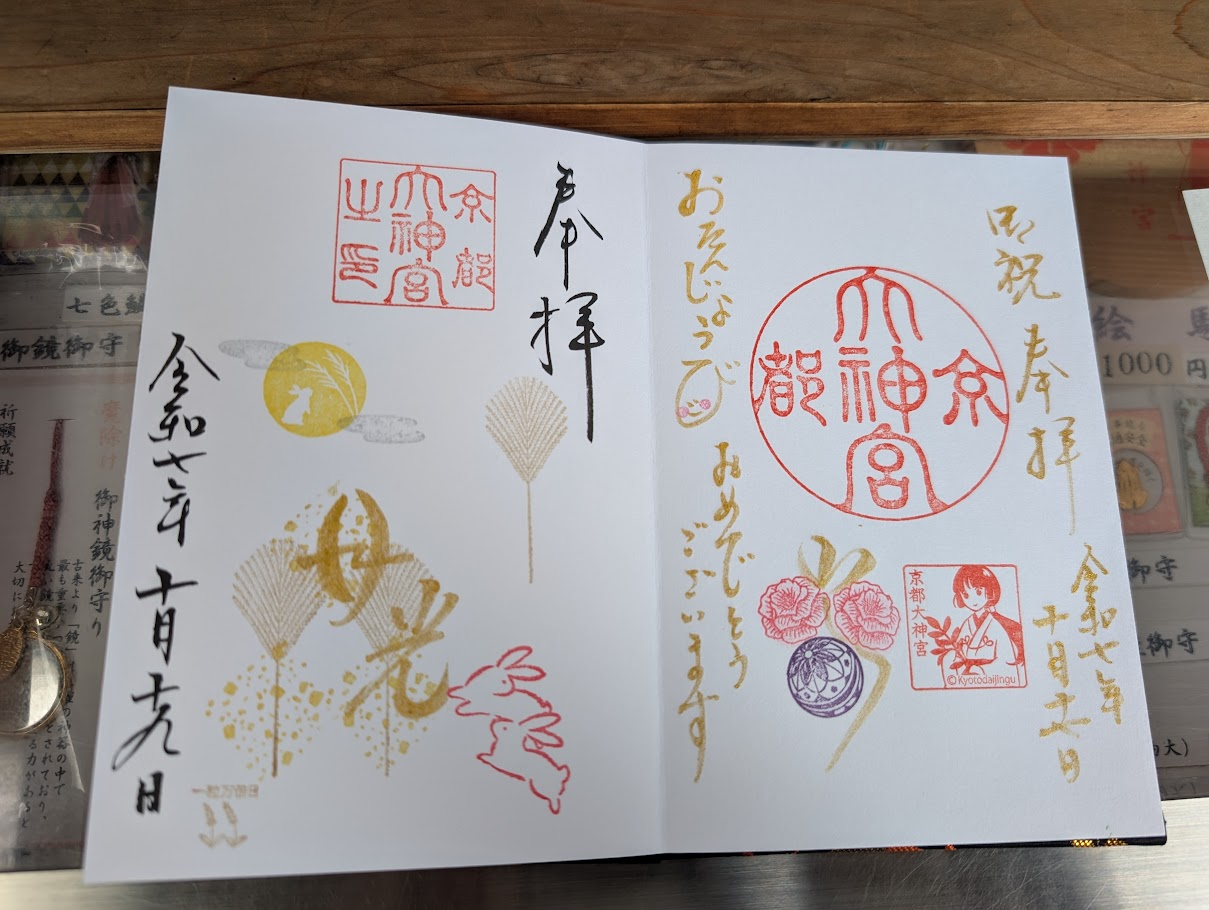 御祝
奉拝
令和七年
十月十九日
京都大神宮
京都大神宮
©Kyotodaijingu
おたんじょうび
おめでとう
ございます
奉拝
京都大神宮之印
光
一粒万倍日
令和七年 十月十九日
絵馬
1000円
御守
御守
七色
御鏡御守
御神鏡御守り
魔除け
祈願成就
古来より「鏡」